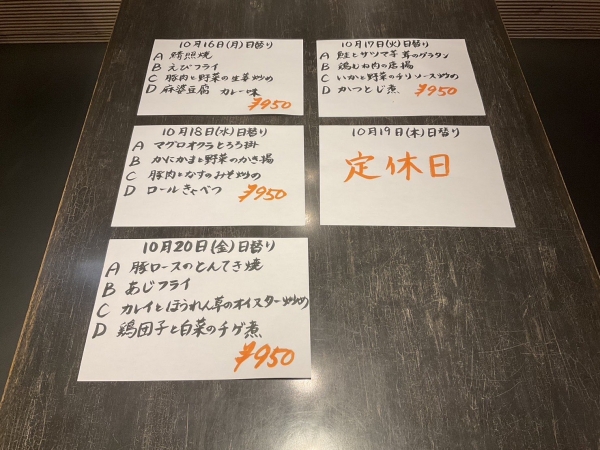 10月16日(月)日替り
A 鯖照焼
B えびフライ
C 豚肉と野菜の生姜炒め
D 麻婆豆腐 カレー味
¥950
10月17日(火)日替り
A 鮭とサツマ芋茸のグラタン
B 鶏むね肉の唐揚
C いかと野菜のチリソース炒め
D かつとじ煮
¥950
10月18日(水)日替り
A マグロオクラとろろ掛
B かにかまと野菜のかき揚
C 豚肉となすのみそ炒め
D ロールきゃべつ
¥950
10月19日(木)日替り
定休日
10月20日(金)日替り
A 豚ロースのとんてき焼
B あじフライ
C カレイとほうれん草のオイスター炒め
D 鶏団子と白菜のチゲ煮
¥950